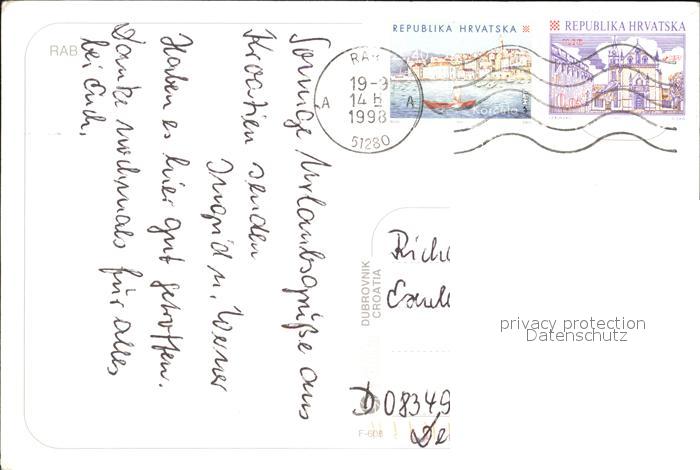 RAB
Sonnige Urlaubsgrüße aus
Kroatien senden
Ingrid u. Werner
Haben es hier gut getroffen.
Danke nochmals für alles
bei Euch.
REPUBLIKA HRVATSKA
Korčula
REPUBLIKA HRVATSKA
RAB
19-9
14 h
1998
A A
51280
DUBROVNIK
CROATIA
Rich
D 08349
F-608
privacy protection
Datenschutz